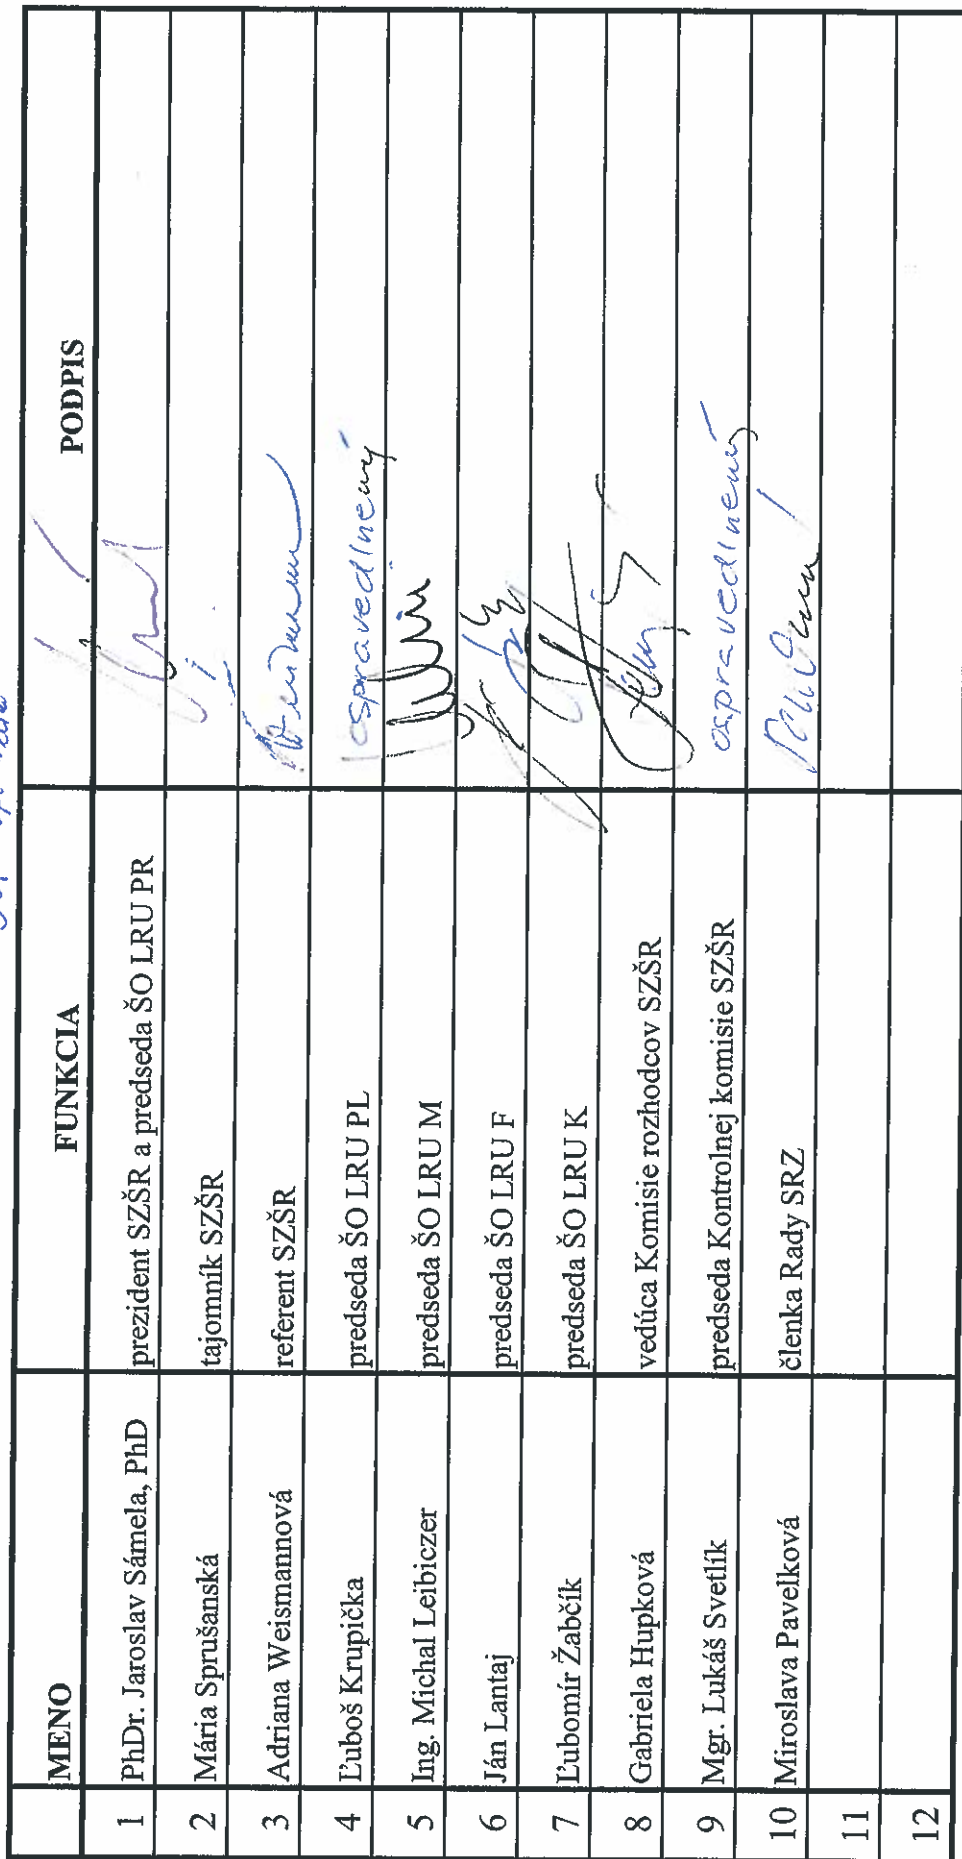 MENO FUNKCIA PODPIS
1 PhDr. Jaroslav Sámela, PhD prezident SZŠR a predseda ŠO LRU PR
2 Mária Sprušanská tajomník SZŠR
3 Adriana Weismannová referent SZŠR
4 Ľuboš Krupička predseda ŠO LRU PL ospravedlnený
5 Ing. Michal Leibiczer predseda ŠO LRU M
6 Ján Lantaj predseda ŠO LRU F
7 Ľubomír Žabčík predseda ŠO LRU K
8 Gabriela Hupková vedúca Komisie rozhodcov SZŠR
9 Mgr. Lukáš Svetlík predseda Kontrolnej komisie SZŠR ospravedlnený
10 Miroslava Pavelková členka Rady SRZ
11
12